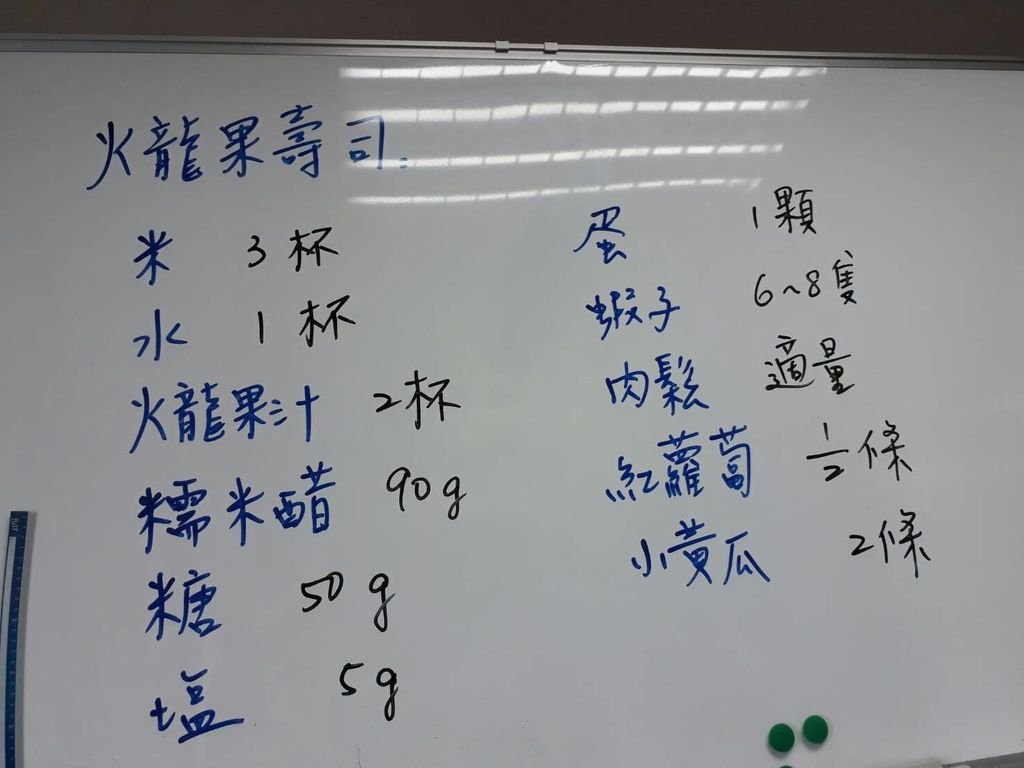 火龍果壽司:
米 3杯
水 1杯
火龍果汁 2杯
糯米醋 90g
糖 50g
塩 5g
蛋 1顆
蝦子 6~8隻
肉鬆 適量
紅蘿蔔 1/2條
小黃瓜 2條